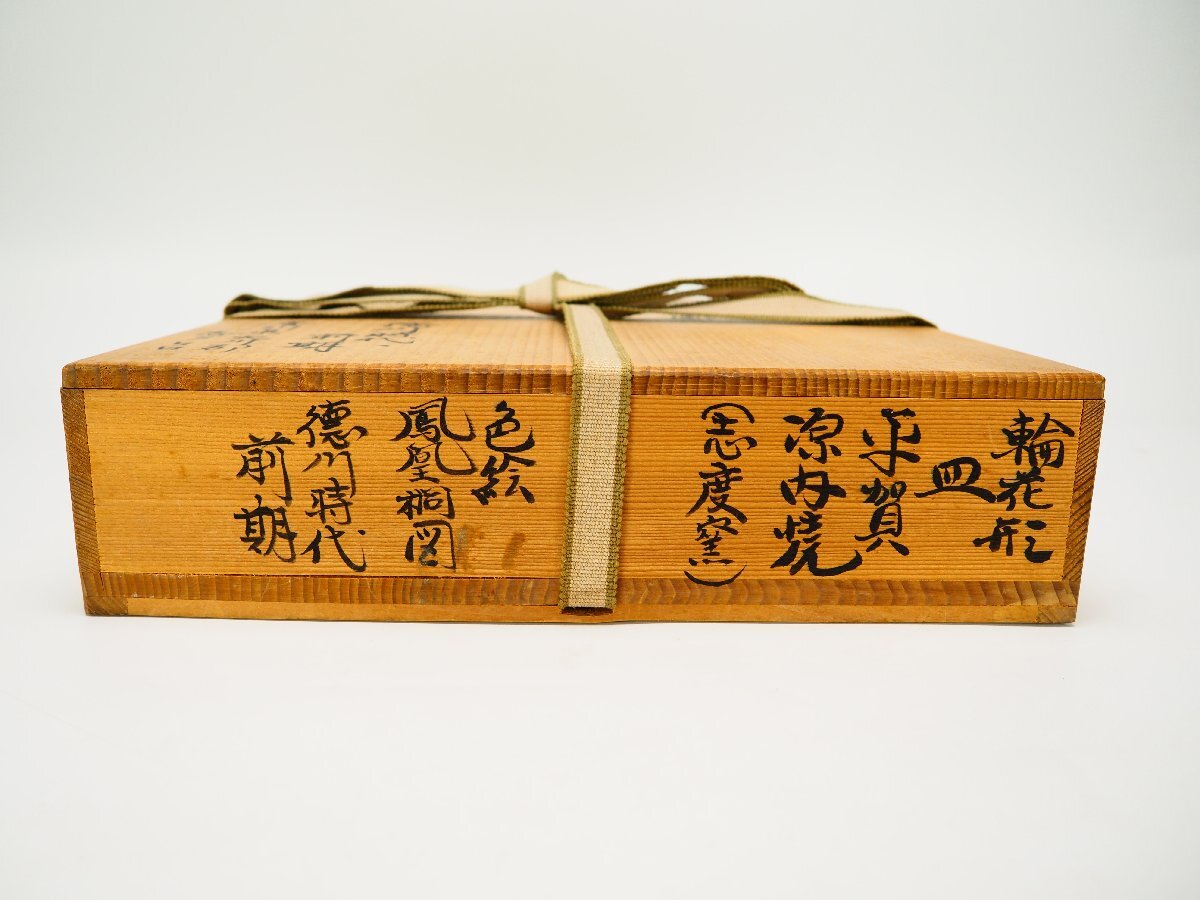 輪花形
皿
平賀
源内焼
(志度窯)
色絵
鳳凰桐図
徳川時代
前期